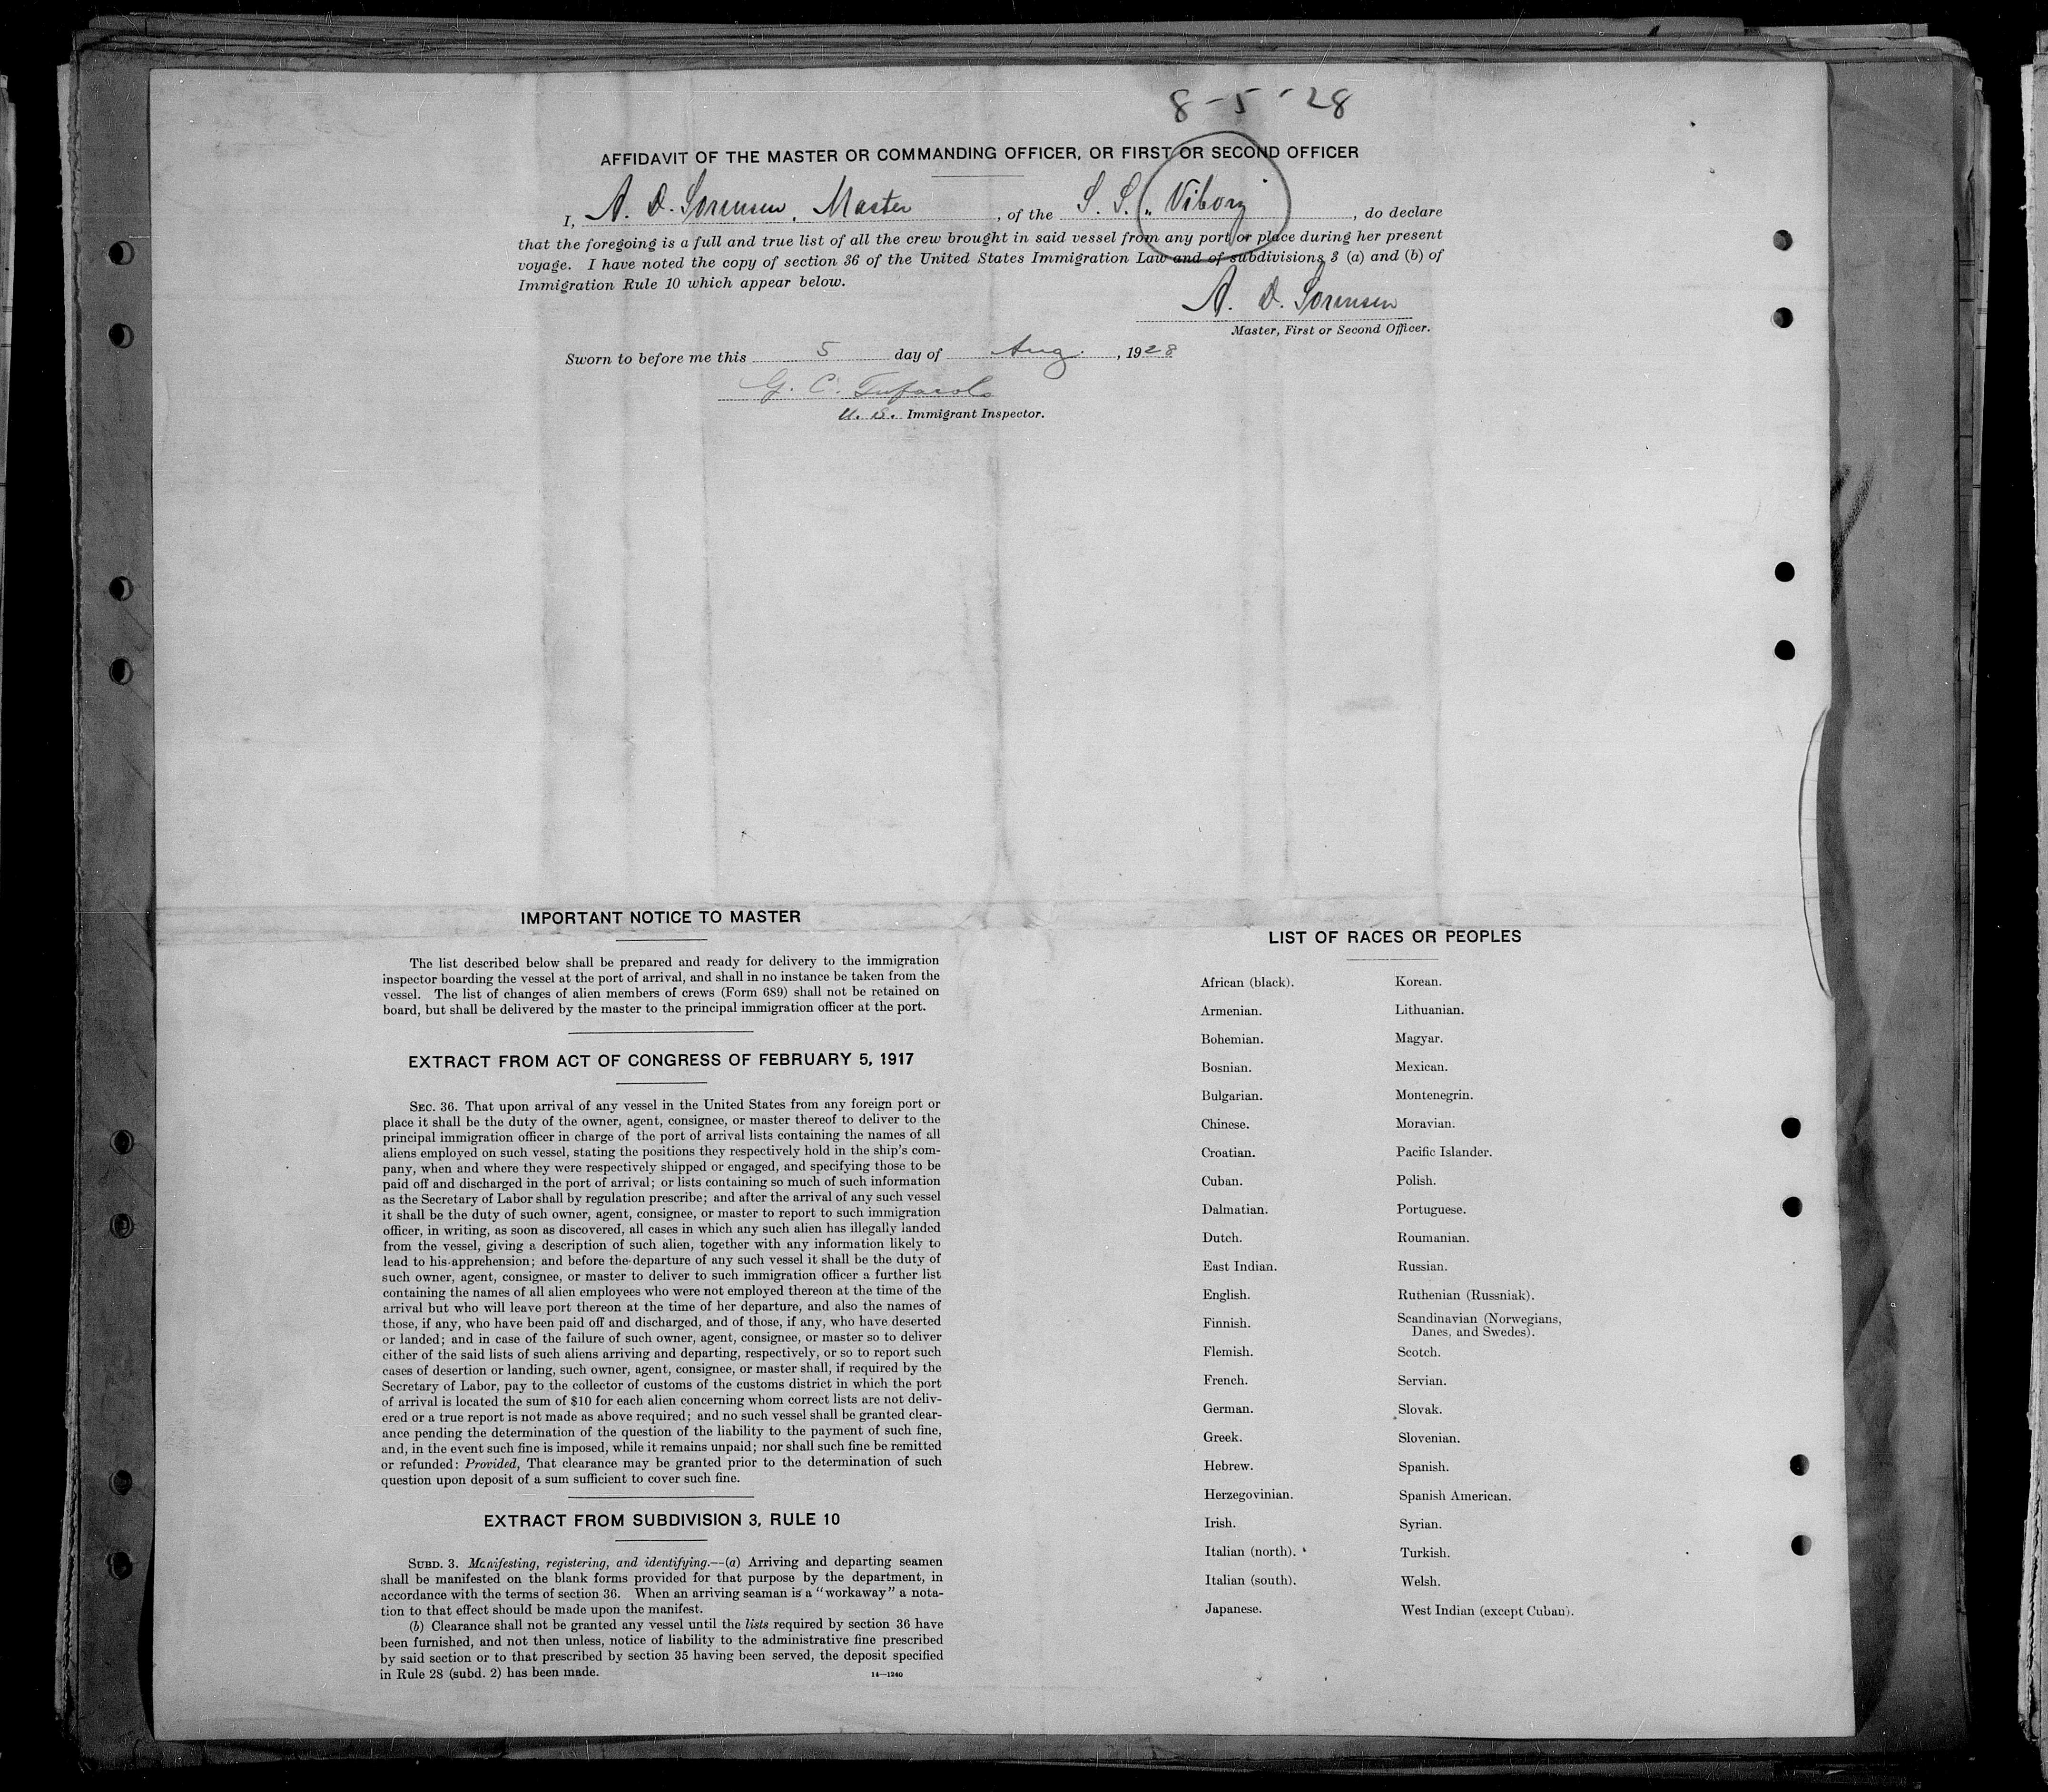 8-5-'28
AFFIDAVIT OF THE MASTER OR COMMANDING OFFICER, OR FIRST OR SECOND OFFICER
I, A. D. Sorensen, Master, of the S. S. „Viborg", do declare
that the foregoing is a full and true list of all the crew brought in said vessel from any port or place during her present
voyage. I have noted the copy of section 36 of the United States Immigration Law and of subdivisions 3 (a) and (b) of
Immigration Rule 10 which appear below.
A. D. Sorensen
Master, First or Second Officer.
Sworn to before me this 5 day of Aug., 1928
G. C.
U. S. Immigrant Inspector.
IMPORTANT NOTICE TO MASTER
The list described below shall be prepared and ready for delivery to the immigration
inspector boarding the vessel at the port of arrival, and shall in no instance be taken from the
vessel. The list of changes of alien members of crews (Form 689) shall not be retained on
board, but shall be delivered by the master to the principal immigration officer at the port.
EXTRACT FROM ACT OF CONGRESS OF FEBRUARY 5, 1917
SEC. 36. That upon arrival of any vessel in the United States from any foreign port or
place it shall be the duty of the owner, agent, consignee, or master thereof to deliver to the
principal immigration officer in charge of the port of arrival lists containing the names of all
aliens employed on such vessel, stating the positions they respectively hold in the ship's com-
pany, when and where they were respectively shipped or engaged, and specifying those to be
paid off and discharged in the port of arrival; or lists containing so much of such information
as the Secretary of Labor shall by regulation prescribe; and after the arrival of any such vessel
it shall be the duty of such owner, agent, consignee, or master to report to such immigration
officer, in writing, as soon as discovered, all cases in which any such alien has illegally landed
from the vessel, giving a description of such alien, together with any information likely to
lead to his apprehension; and before the departure of any such vessel it shall be the duty of
such owner, agent, consignee, or master to deliver to such immigration officer a further list
containing the names of all alien employees who were not employed thereon at the time of the
arrival but who will leave port thereon at the time of her departure, and also the names of
those, if any, who have been paid off and discharged, and of those, if any, who have deserted
or landed; and in case of the failure of such owner, agent, consignee, or master so to deliver
either of the said lists of such aliens arriving and departing, respectively, or so to report such
cases of desertion or landing, such owner, agent, consignee, or master shall, if required by the
Secretary of Labor, pay to the collector of customs of the customs district in which the port
of arrival is located the sum of $10 for each alien concerning whom correct lists are not deliv-
ered or a true report is not made as above required; and no such vessel shall be granted clear-
ance pending the determination of the question of the liability to the payment of such fine,
and, in the event such fine is imposed, while it remains unpaid; nor shall such fine be remitted
or refunded: Provided, That clearance may be granted prior to the determination of such
question upon deposit of a sum sufficient to cover such fine.
EXTRACT FROM SUBDIVISION 3, RULE 10
SUBD. 3. Manifesting, registering, and identifying.—(a) Arriving and departing seamen
shall be manifested on the blank forms provided for that purpose by the department, in
accordance with the terms of section 36. When an arriving seaman is a "workaway" a nota-
tion to that effect should be made upon the manifest.
(b) Clearance shall not be granted any vessel until the lists required by section 36 have
been furnished, and not then unless, notice of liability to the administrative fine prescribed
by said section or to that prescribed by section 35 having been served, the deposit specified
in Rule 28 (subd. 2) has been made.
14—1240
LIST OF RACES OR PEOPLES
African (black).
Armenian.
Bohemian.
Bosnian.
Bulgarian.
Chinese.
Croatian.
Cuban.
Dalmatian.
Dutch.
East Indian.
English.
Finnish.
Flemish.
French.
German.
Greek.
Hebrew.
Herzegovinian.
Irish.
Italian (north).
Italian (south).
Japanese.
Korean.
Lithuanian.
Magyar.
Mexican.
Montenegrin.
Moravian.
Pacific Islander.
Polish.
Portuguese.
Roumanian.
Russian.
Ruthenian (Russniak).
Scandinavian (Norwegians,
Danes, and Swedes).
Scotch.
Servian.
Slovak.
Slovenian.
Spanish.
Spanish American.
Syrian.
Turkish.
Welsh.
West Indian (except Cuban).